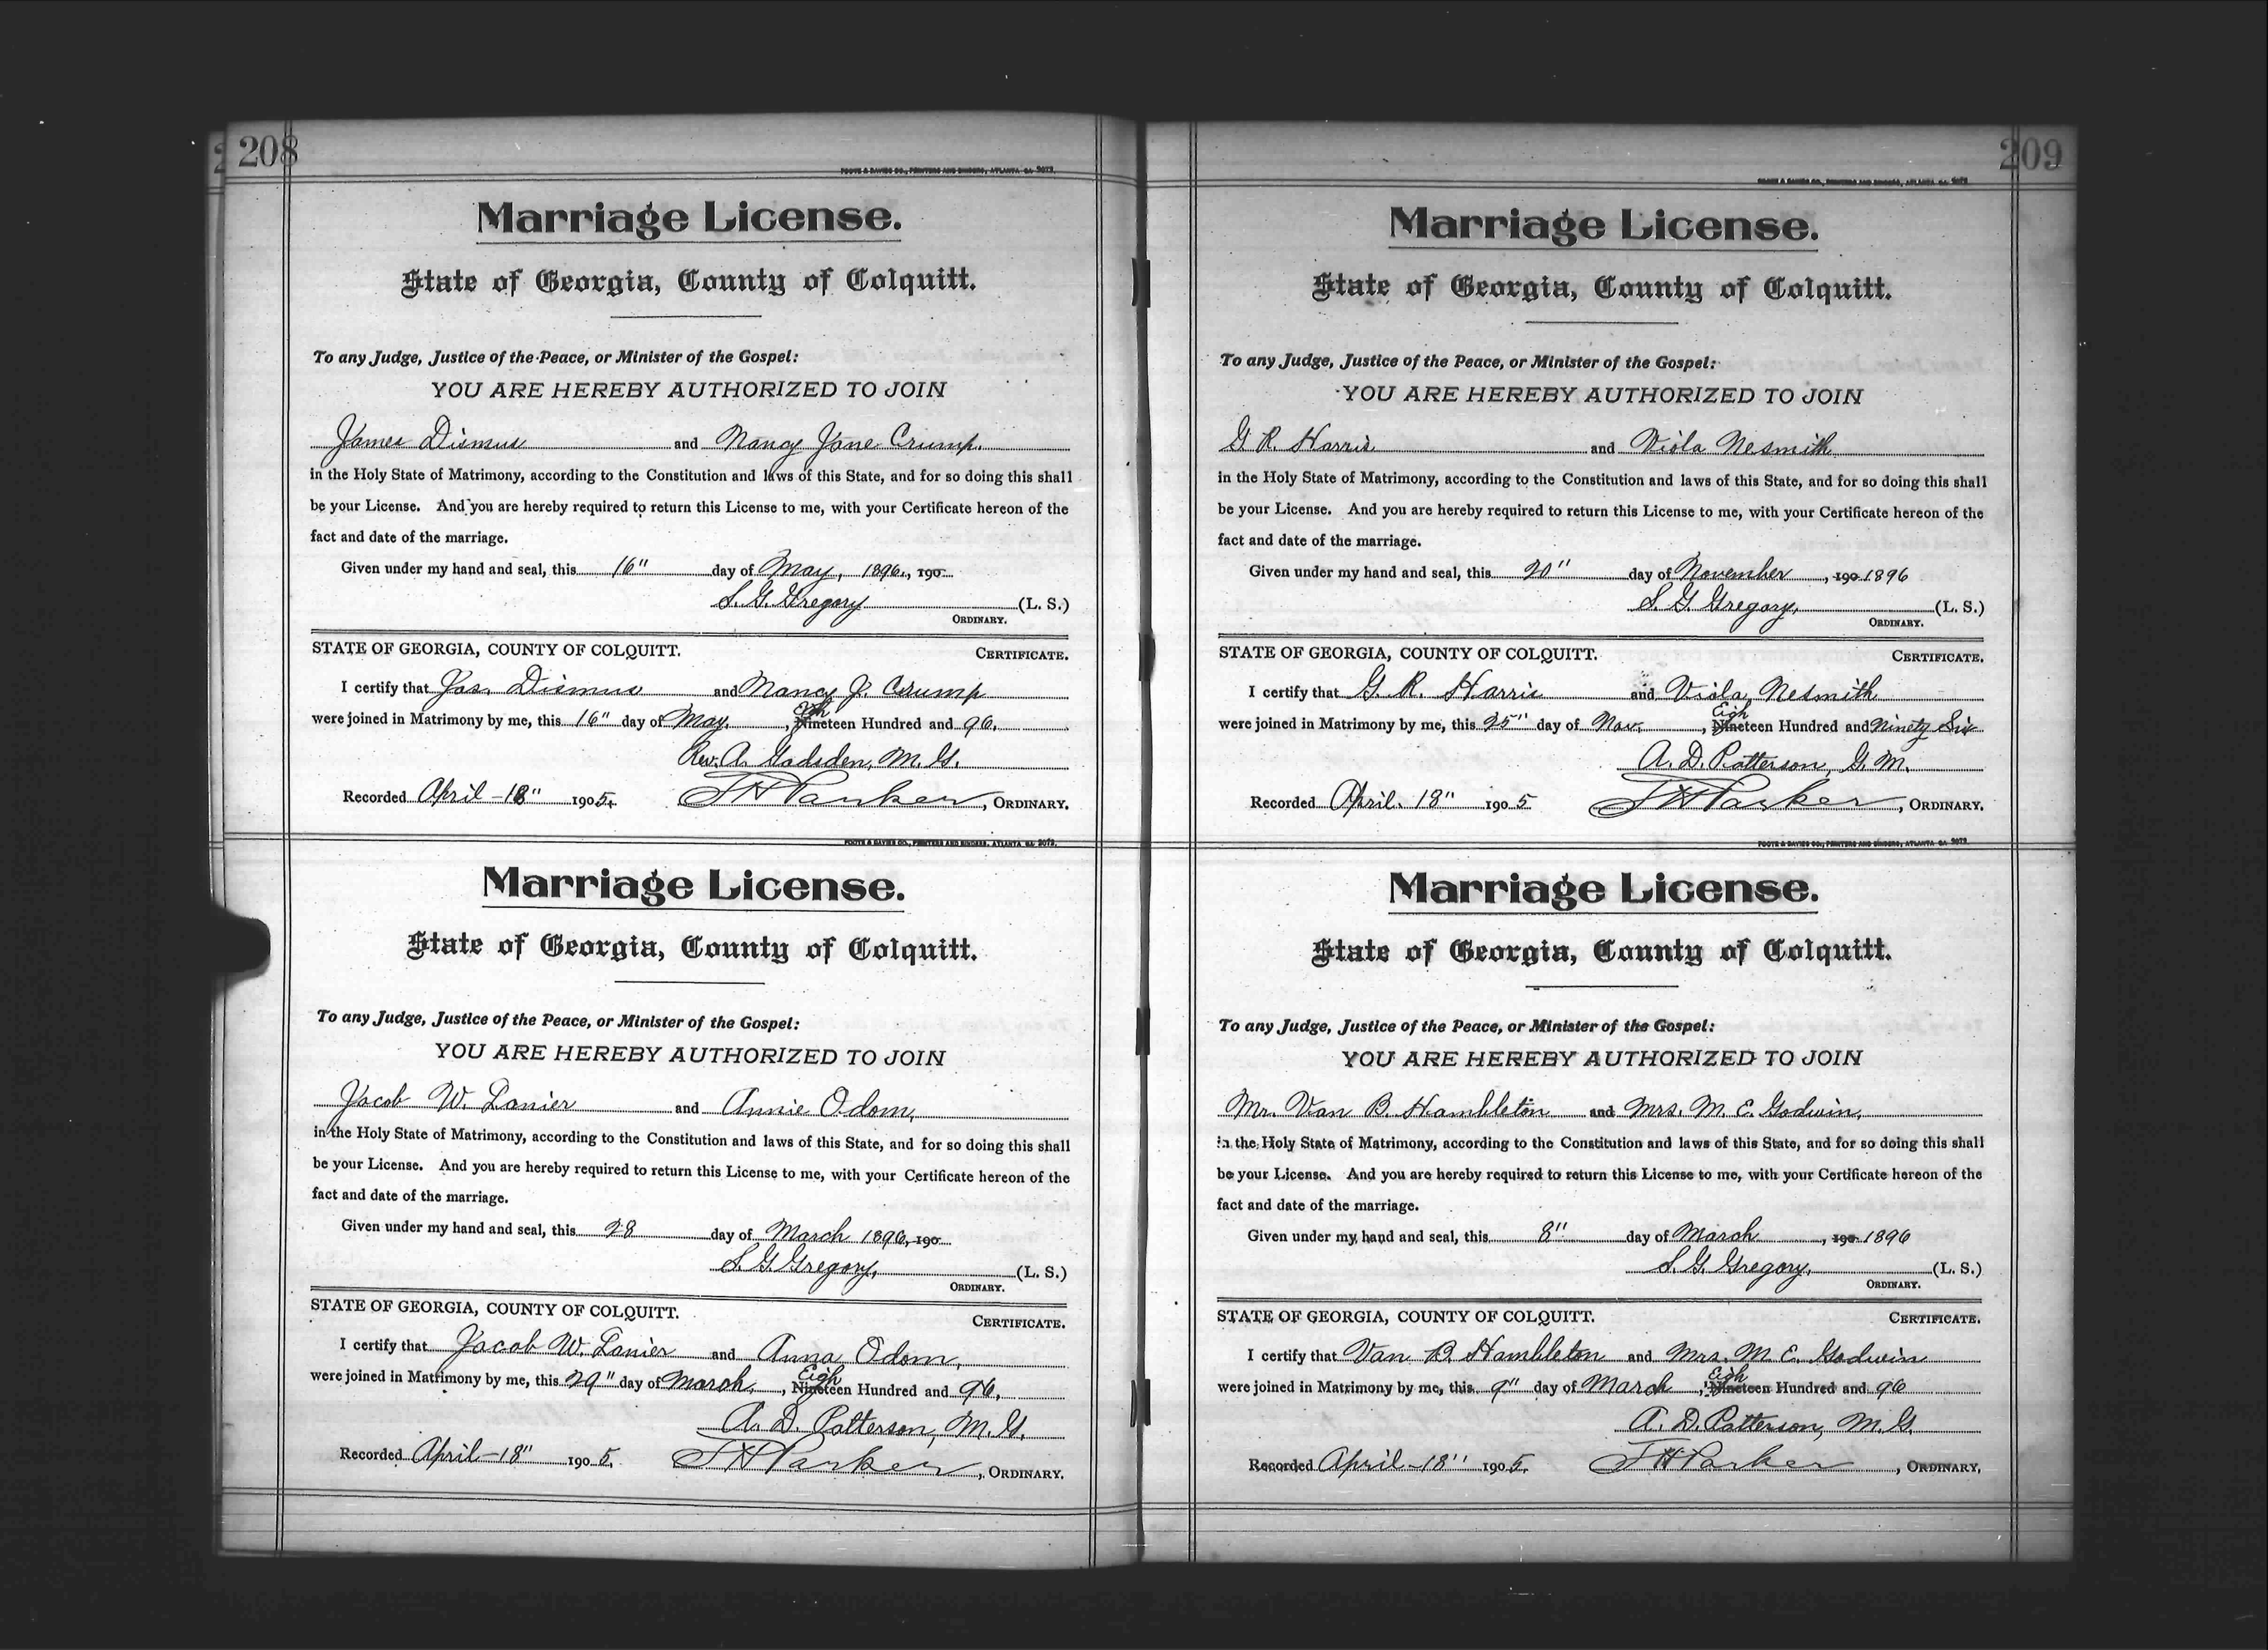 208
FOOTE & DAVIES CO., PRINTERS AND BINDERS, ATLANTA GA 9072.
Marriage License.
State of Georgia, County of Colquitt.
To any Judge, Justice of the Peace, or Minister of the Gospel:
YOU ARE HEREBY AUTHORIZED TO JOIN
James Dismus and Nancy Jane Crump.
in the Holy State of Matrimony, according to the Constitution and laws of this State, and for so doing this shall
be your License. And you are hereby required to return this License to me, with your Certificate hereon of the
fact and date of the marriage.
Given under my hand and seal, this 16" day of May, 1896., 190
S. G. Gregory (L. S.)
ORDINARY.
STATE OF GEORGIA, COUNTY OF COLQUITT. CERTIFICATE.
I certify that Jas. Dismus and Nancy J. Crump
were joined in Matrimony by me, this 16" day of May, Eigh Nineteen Hundred and 96.
Rev. A. Gadsden, M. G.
Recorded April-18" 1905. J H Parker, ORDINARY.
FOOTE & DAVIES CO., PRINTERS AND BINDERS, ATLANTA GA. 9072.
Marriage License.
State of Georgia, County of Colquitt.
To any Judge, Justice of the Peace, or Minister of the Gospel:
YOU ARE HEREBY AUTHORIZED TO JOIN
Jacob W. Lanier and Annie Odom,
in the Holy State of Matrimony, according to the Constitution and laws of this State, and for so doing this shall
be your License. And you are hereby required to return this License to me, with your Certificate hereon of the
fact and date of the marriage.
Given under my hand and seal, this 28 day of March 1896, 190
S. G. Gregory, (L. S.)
ORDINARY.
STATE OF GEORGIA, COUNTY OF COLQUITT. CERTIFICATE.
I certify that Jacob W. Lanier and Anna Odom,
were joined in Matrimony by me, this 29" day of March, Eigh Nineteen Hundred and 96,
A. D. Patterson, M. G.
Recorded April-18" 1905. J H Parker, ORDINARY.
209
FOOTE & DAVIES CO., PRINTERS AND BINDERS, ATLANTA GA. 9072
Marriage License.
State of Georgia, County of Colquitt.
To any Judge, Justice of the Peace, or Minister of the Gospel:
YOU ARE HEREBY AUTHORIZED TO JOIN
G R. Harris and Viola Nesmith
in the Holy State of Matrimony, according to the Constitution and laws of this State, and for so doing this shall
be your License. And you are hereby required to return this License to me, with your Certificate hereon of the
fact and date of the marriage.
Given under my hand and seal, this 20" day of November, 190 1896
S. G. Gregory, (L. S.)
ORDINARY.
STATE OF GEORGIA, COUNTY OF COLQUITT. CERTIFICATE.
I certify that G. R. Harris and Viola Nesmith
were joined in Matrimony by me, this 25" day of Nov., Eigh Nineteen Hundred and Ninety Six
A. D. Patterson, G. M.
Recorded April. 18" 1905 J H Parker, ORDINARY.
FOOTE & DAVIES CO., PRINTERS AND BINDERS, ATLANTA GA 9072
Marriage License.
State of Georgia, County of Colquitt.
To any Judge, Justice of the Peace, or Minister of the Gospel:
YOU ARE HEREBY AUTHORIZED TO JOIN
Mr. Van B. Hambleton and Mrs. M. E. Godwin,
in the Holy State of Matrimony, according to the Constitution and laws of this State, and for so doing this shall
be your License. And you are hereby required to return this License to me, with your Certificate hereon of the
fact and date of the marriage.
Given under my hand and seal, this 8" day of March, 190 1896
S. G. Gregory, (L. S.)
ORDINARY.
STATE OF GEORGIA, COUNTY OF COLQUITT. CERTIFICATE.
I certify that Van B. Hambleton and Mrs. M. E. Godwin
were joined in Matrimony by me, this 9" day of March, Eigh Nineteen Hundred and 96
A. D. Patterson, M. G.
Recorded April-18" 1905. J H Parker, ORDINARY,